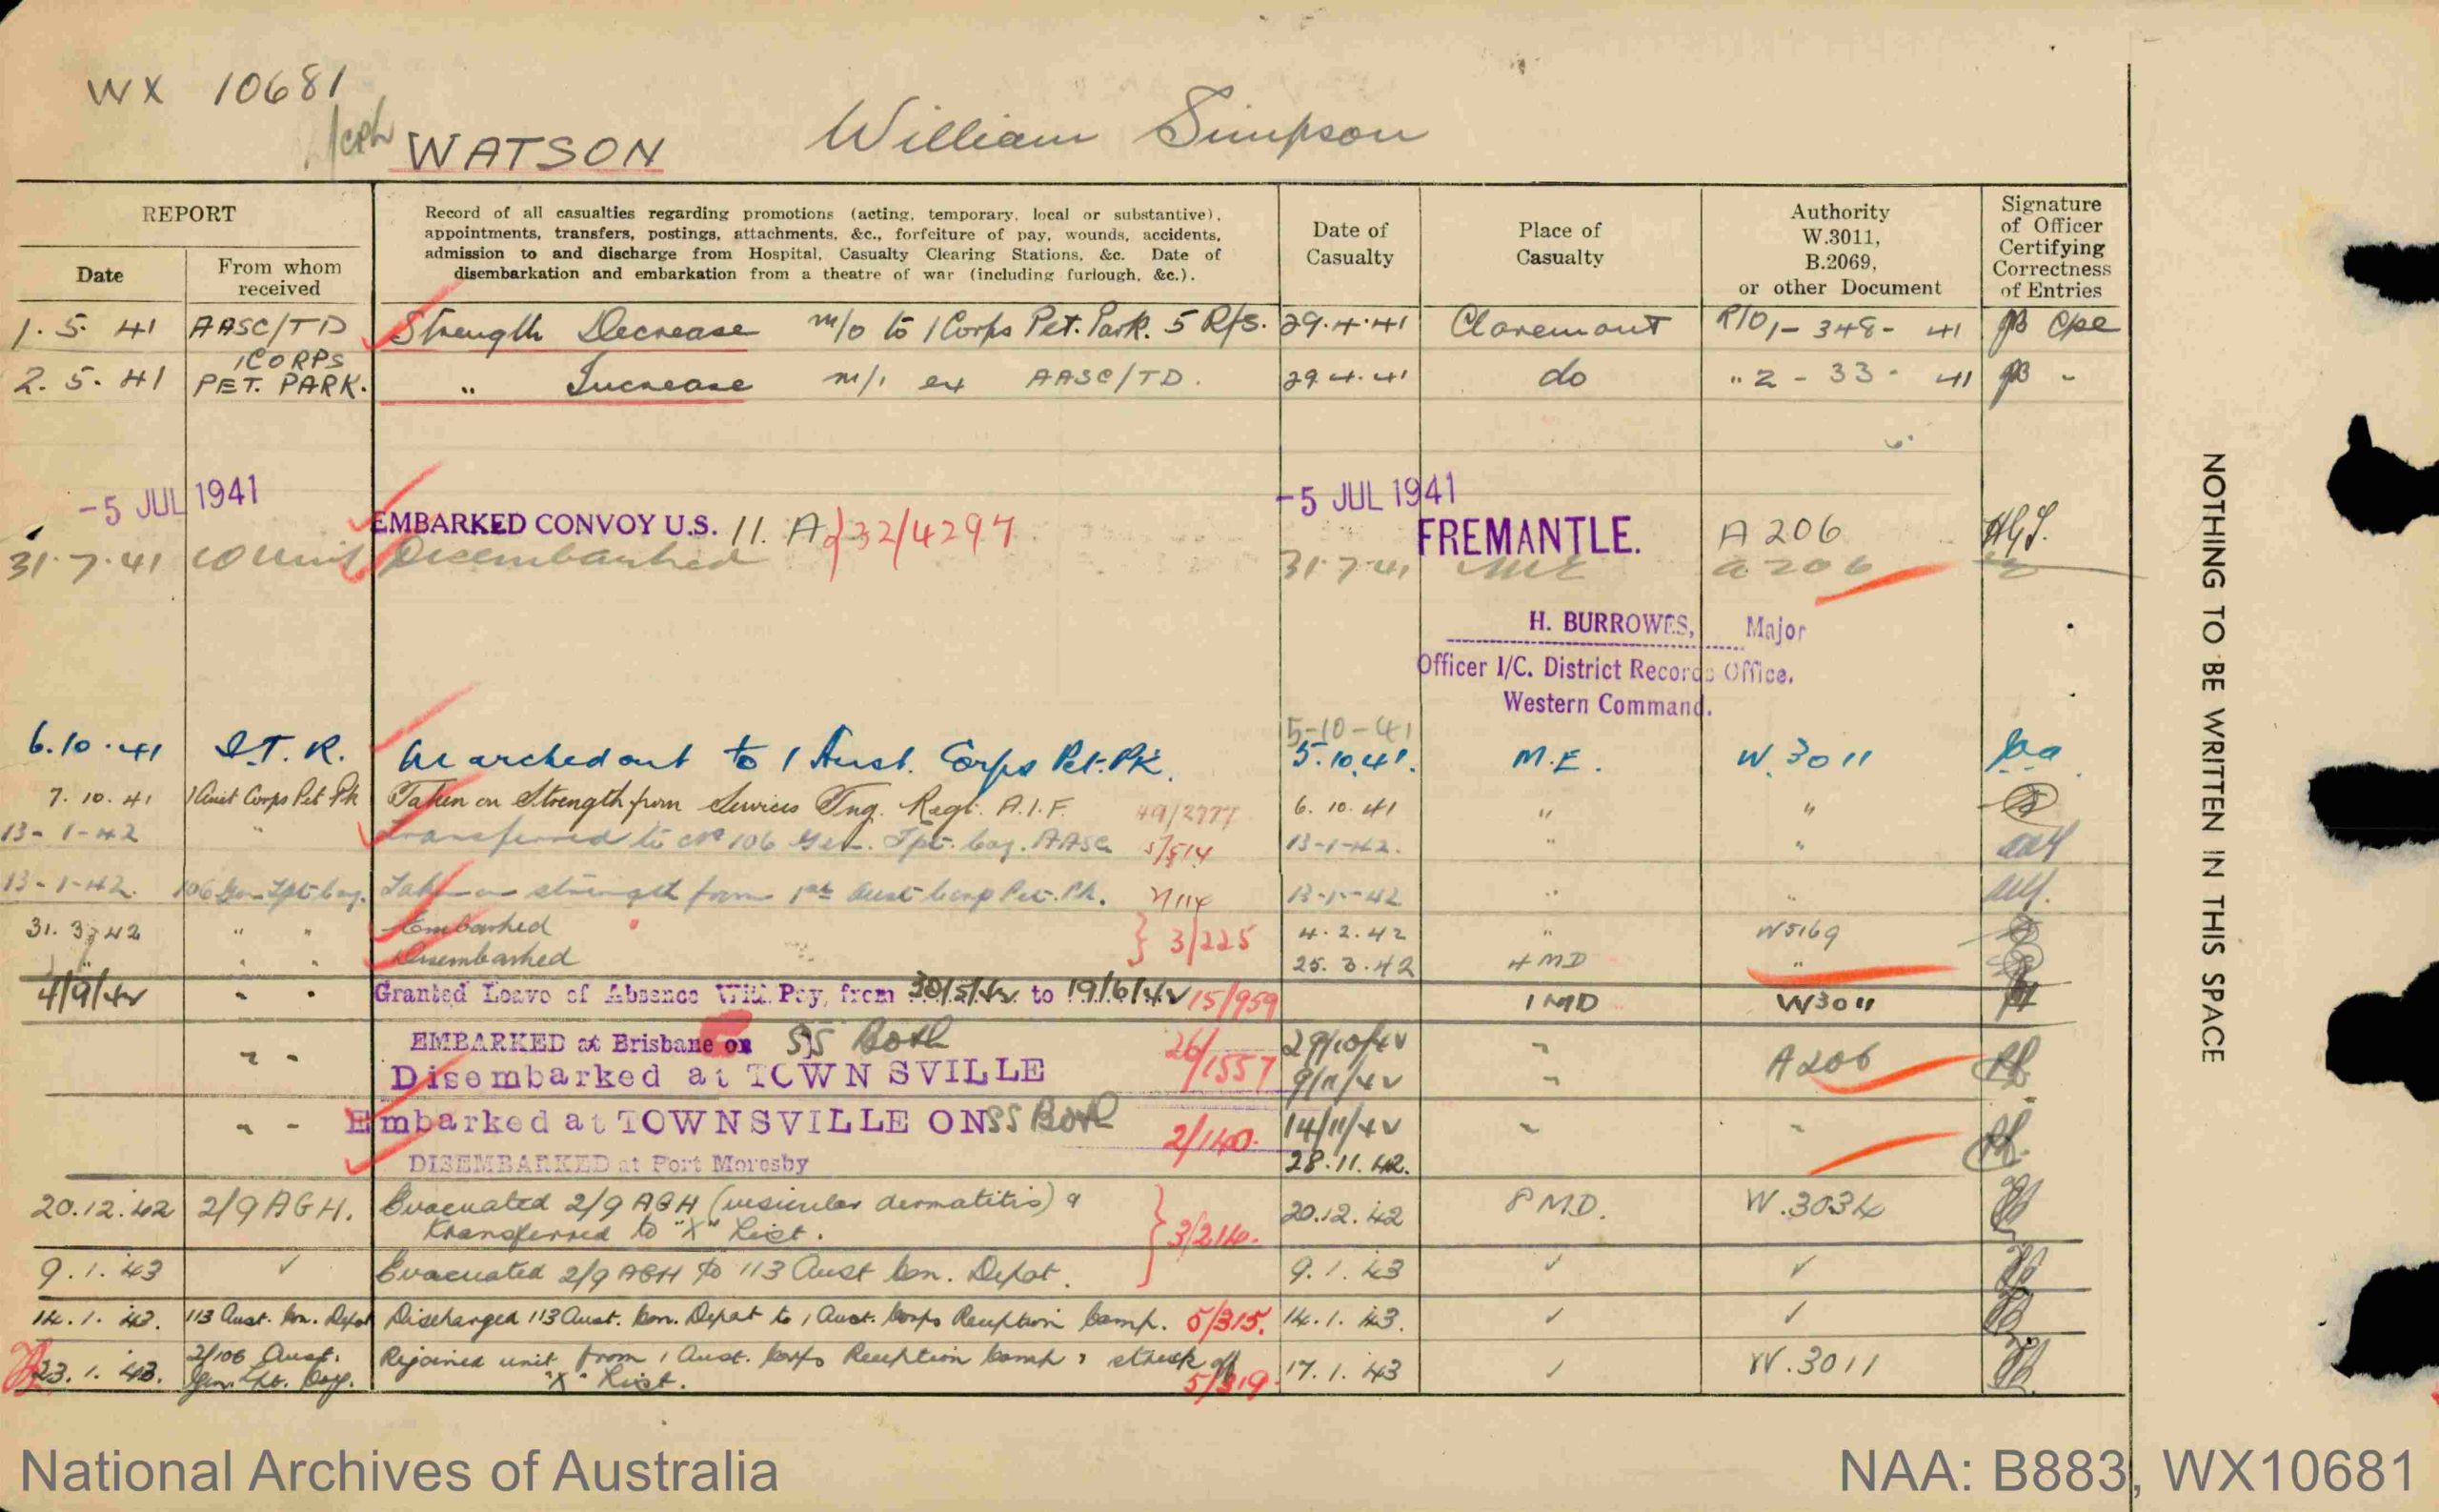 WX 10681
WATSON William Simpson
REPORT
Date
From whom received
Record of all casualties regarding promotions (acting, temporary, local or substantive),
appointments, transfers, postings, attachments, &c., forfeiture of pay, wounds, accidents,
admission to and discharge from Hospital, Casualty Clearing Stations, &c. Date of
disembarkation and embarkation from a theatre of war (including furlough, &c.).
Date of Casualty
Place of Casualty
Authority W.3011, B.2069, or other Document
Signature of Officer Certifying Correctness of Entries
1.5.41 AASC/TD Strength Decrease m/o to 1 Corps Pet. Park. 5 Rfs. 29.4.41 Claremont R/O 1-348-41
2.5.41 1 CORPS PET. PARK. " Increase m/i ex AASC/TD. 29.4.41 do "2-33-41
-5 JUL 1941 EMBARKED CONVOY U.S. 11.A 32/4297 -5 JUL 1941 FREMANTLE. A206
31.7.41 Disembarked 31.7.41 ME A206
H. BURROWES, Major
Officer I/C. District Records Office.
Western Command.
5-10-41
6.10.41 S.T.R. Marched out to 1 Aust. Corps Pet. Pk. 5.10.41. M.E. W.3011
7.10.41 1 Aust Corps Pet Pk Taken on Strength from Services Tng. Regt. A.I.F. 49/2777 6.10.41 " "
13-1-42 " Transferred to 106 Gen. Tpt. Coy. AASC 5/514 13-1-42. " "
13-1-42. 106 Gen Tpt Coy. Taken on strength from 1st Aust Corp Pet. Pk. 13-1-42 " "
31.3.42 " " Embarked 4.2.42 " W5169
" " Disembarked } 3/225 25.3.42 4 MD "
4/9/42 " " Granted Leave of Absence With Pay, from 30/5/42 to 19/6/42 15/959 1 MD W3011
" " EMBARKED at Brisbane on SS Both 26/1557 29/10/42 " A206
Disembarked at TOWNSVILLE 9/11/42 "
" " Embarked at TOWNSVILLE ON SS Both 2/140. 14/11/42 " "
DISEMBARKED at Port Moresby 28.11.42.
20.12.42 2/9 AGH. Evacuated 2/9 AGH (vesicular dermatitis) &
transferred to "X" List. } 3/214. 20.12.42 8 M.D. W.3034
9.1.43 ✓ Evacuated 2/9 AGH to 113 Aust Con. Depot. 9.1.43 ✓ ✓
14.1.43. 113 Aust. Con. Depot Discharged 113 Aust. Con. Depot to 1 Aust. Corps Reception Camp. 5/315. 14.1.43. ✓ ✓
23.1.43. 2/106 Aust. Gen. Tpt. Coy. Rejoined unit from 1 Aust. Corps Reception Camp & struck off
"X" List. 5/319. 17.1.43 ✓ W.3011
NOTHING TO BE WRITTEN IN THIS SPACE
National Archives of Australia
NAA: B883, WX10681